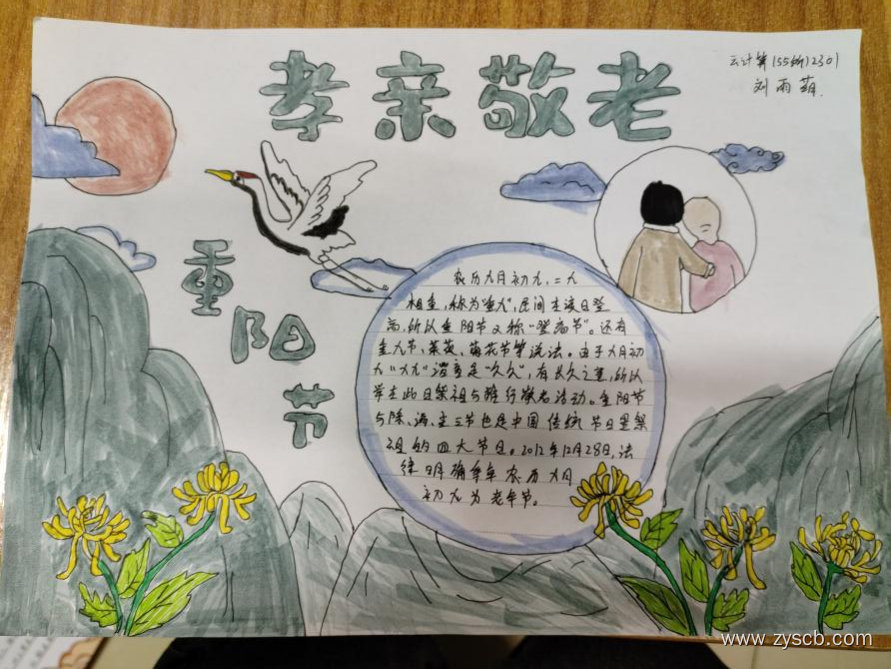 孝亲敬老
云计算(55制)2301
刘雨萌
重阳节
农历九月初九,二九
相重,称为"重九",民间在该日登
高,所以重阳节又称"登高节"。还有
重九节、茱萸、菊花节等说法。由于九月初
九"九九"谐音是"久久",有长久之意,所以
常在此日祭祖与推行敬老活动。重阳节
与除、清、盂三节也是中国传统节日里祭
祖的四大节日。2012年12月28日,法
律明确每年农历九月
初九为老年节。
www.zyscb.com